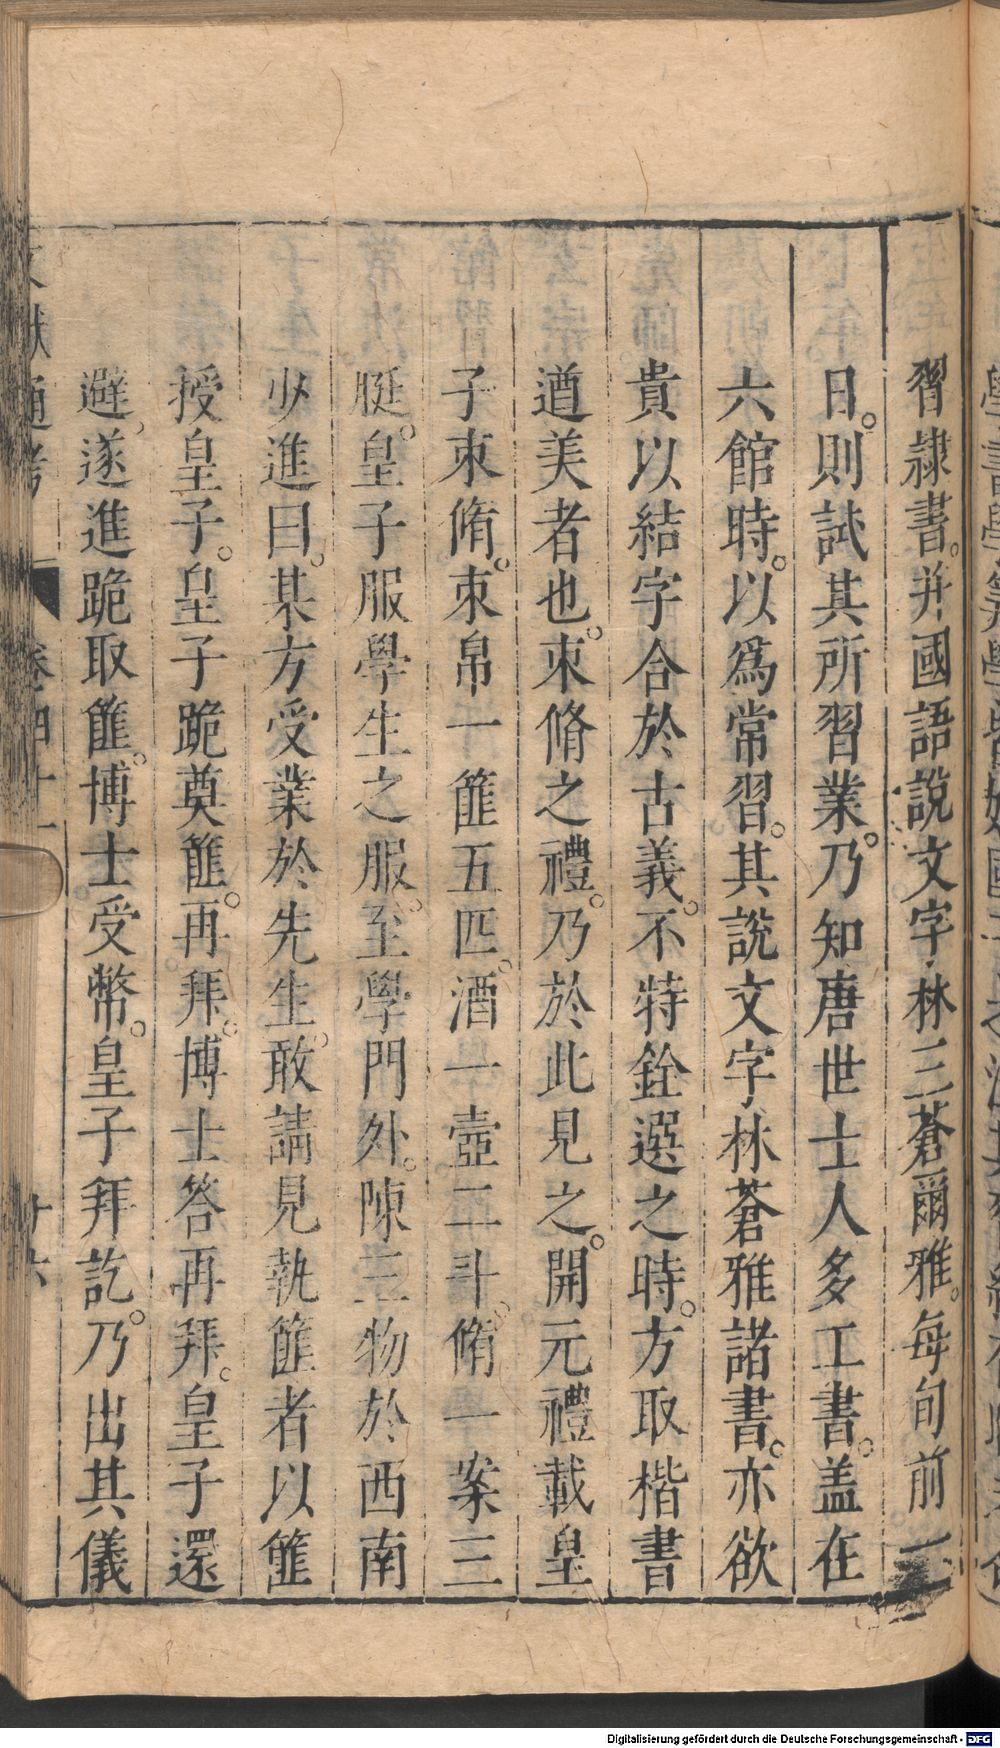 習隷書。并國語說文字林三蒼爾雅。每旬前一
日。則試其所習業。乃知唐世士人多工書。盖在
六館時。以爲常習。其說文字林蒼雅諸書。亦欲
貴以結字合於古義。不特銓選之時。方取楷書
遒美者也。束脩之禮。乃於此見之。開元禮載皇
子束脩。束帛一篚五匹。酒一壺二斗。脩一案三
脡。皇子服學生之服。至學門外。陳三物於西南
少進曰。某方受業於先生。敢請見執篚者以篚
授皇子。皇子跪奠篚。再拜。博士答再拜。皇子還
避、遂進跪取篚。博士受幣。皇子拜訖。乃出其儀
通考 卷四十一
Digitalisierung gefördert durch die Deutsche Forschungsgemeinschaft - DFG